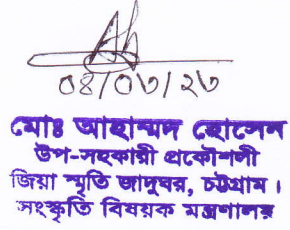 ০৪/০৩/২৩
মোঃ আহাম্মদ হোসেন
উপ-সহকারী প্রকৌশলী
জিয়া স্মৃতি জাদুঘর, চট্টগ্রাম।
সংস্কৃতি বিষয়ক মন্ত্রণালয়